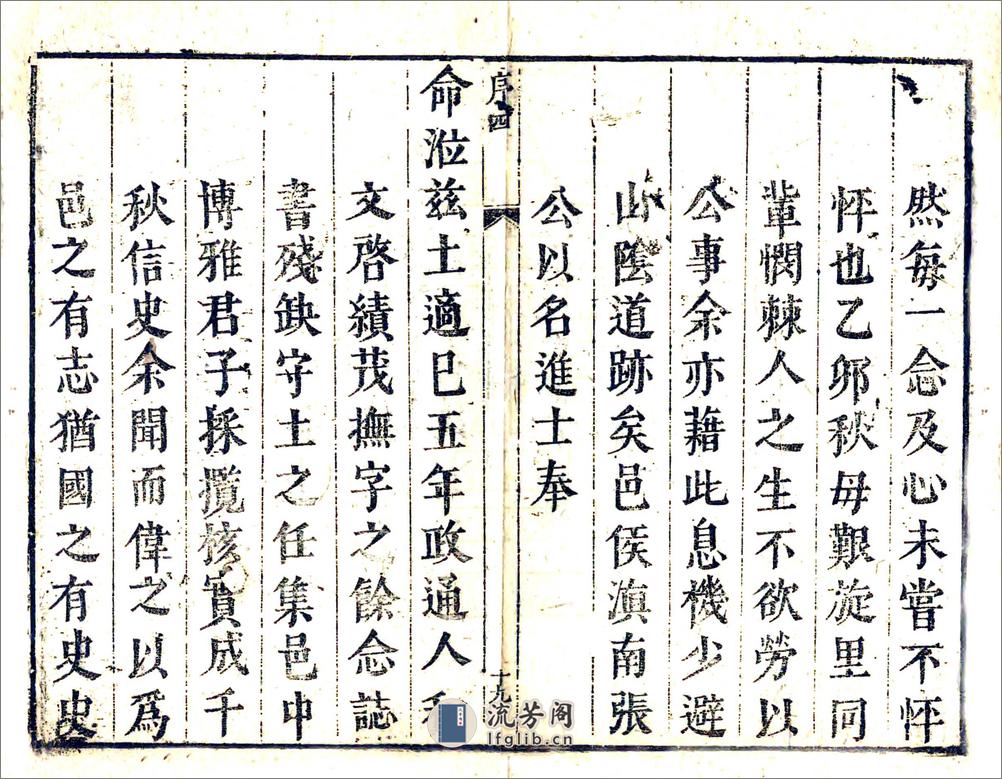 然每一念及心未嘗不怦
怦也乙夘秋毋艱旋里同
軰憫棘人之生不欲勞以
公事余亦藉此息機少避
山隂道跡矣邑侯滇南張
公以名進士奉
序四
十九
命涖兹土適已五年政通人和
文啓績茂撫字之餘念誌
書殘缺守土之任集邑中
博雅君子採攬核實成千
秋信史余聞而偉之以爲
邑之有志猶國之有史史
流芳阁
lfglib.cn